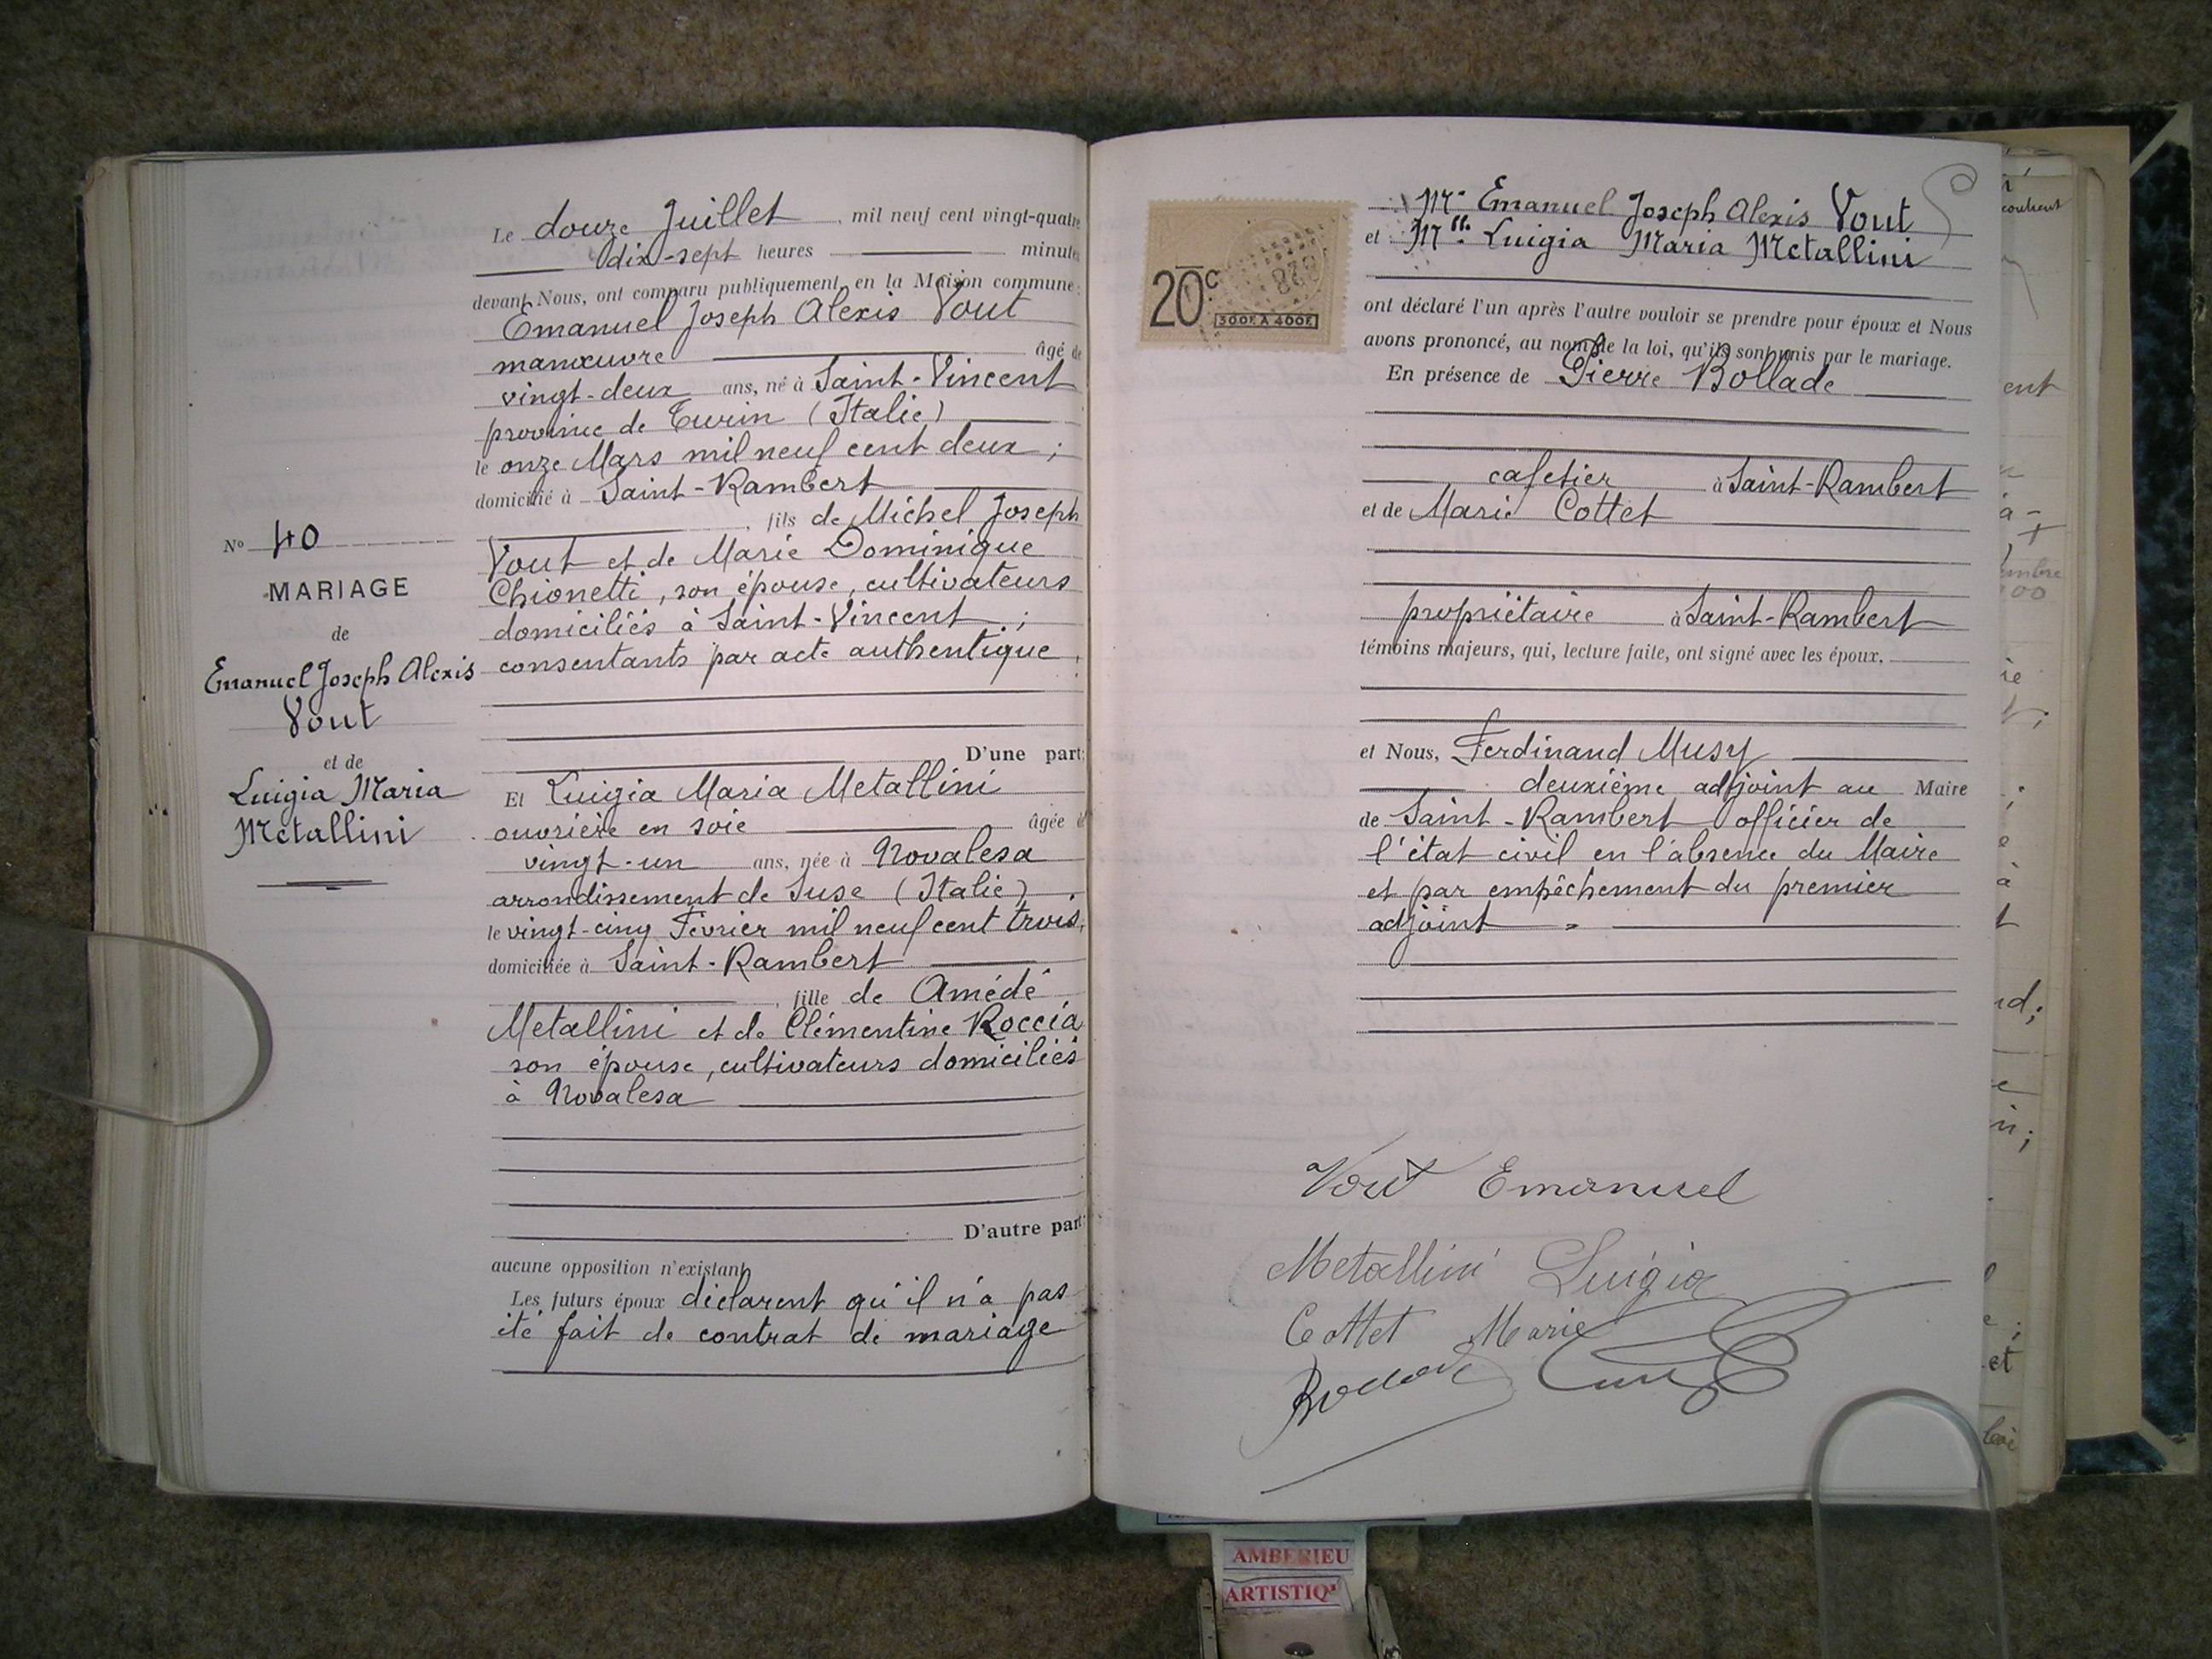 N° 40
MARIAGE
de
Emanuel Joseph Alexis
Vout
et de
Luigia Maria
Metallini
Le douze Juillet, mil neuf cent vingt-quatre
dix-sept heures minutes
devant Nous, ont comparu publiquement en la Maison commune :
Emanuel Joseph Alexis Vout
manœuvre âgé de
vingt-deux ans, né à Saint-Vincent
province de Turin (Italie)
le onze Mars mil neuf cent deux ;
domicilié à Saint-Rambert
, fils de Michel Joseph
Vout et de Marie Dominique
Chionetti, son épouse, cultivateurs
domiciliés à Saint-Vincent ;
consentants par acte authentique
D'une part;
Et Luigia Maria Metallini
ouvrière en soie âgée d
vingt-un ans, née à Novalesa
arrondissement de Suse (Italie)
le vingt-cinq Février mil neuf cent trois,
domiciliée à Saint-Rambert
, fille de Amédé
Metallini et de Clémentine Roccia
son épouse, cultivateurs domiciliés
à Novalesa
D'autre part
aucune opposition n'existant
Les futurs époux déclarent qu'il n'a pas
été fait de contrat de mariage
20c
300F A 400F
Mr Emanuel Joseph Alexis Vout
et Mlle Luigia Maria Metallini
ont déclaré l'un après l'autre vouloir se prendre pour époux et Nous
avons prononcé, au nom de la loi, qu'ils sont unis par le mariage.
En présence de Pierre Bollade
cafetier à Saint-Rambert
et de Marie Cottet
propriétaire à Saint-Rambert
témoins majeurs, qui, lecture faite, ont signé avec les époux.
et Nous, Ferdinand Musy
deuxième adjoint au Maire
de Saint-Rambert officier de
l'état civil en l'absence du Maire
et par empêchement du premier
adjoint
Vout Emanuel
Metallini Luigia
Cottet Marie
AMBERIEU
ARTISTIQ